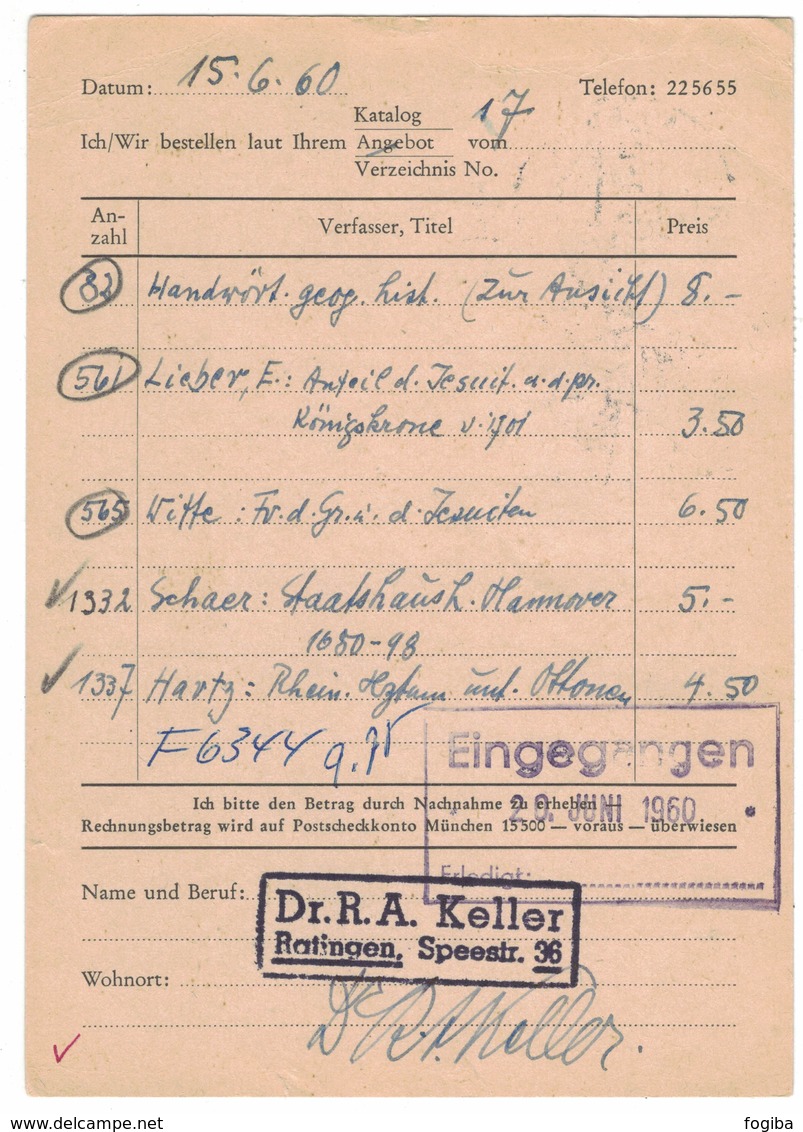 Datum: 15.6.60 Telefon: 225655
Katalog 17
Ich/Wir bestellen laut Ihrem Angebot vom
Verzeichnis No.
An-
zahl Verfasser, Titel Preis
82 Handwört. geog. hist. (Zur Ansicht) 8.-
561 Lieber, E.: Anteil d. Jesuit. a. d. pr.
Königskrone v. 1701 3.50
565 Witte: Fr. d. Gr. u. d. Jesuiten 6.50
1332 Schaer: Staatshaush. Hannover 5.-
1680-98
1337 Hartz: Rhein. Hztum unt. Ottonen 4.50
F6344
Eingegangen
Ich bitte den Betrag durch Nachnahme zu erheben —
20. JUNI 1960
Rechnungsbetrag wird auf Postscheckkonto München 15500 — voraus — überwiesen
Erledigt:
Name und Beruf:
Dr. R. A. Keller
Ratingen, Speestr. 36
Wohnort:
Dr R. A. Keller.
www.delcampe.net fogiba